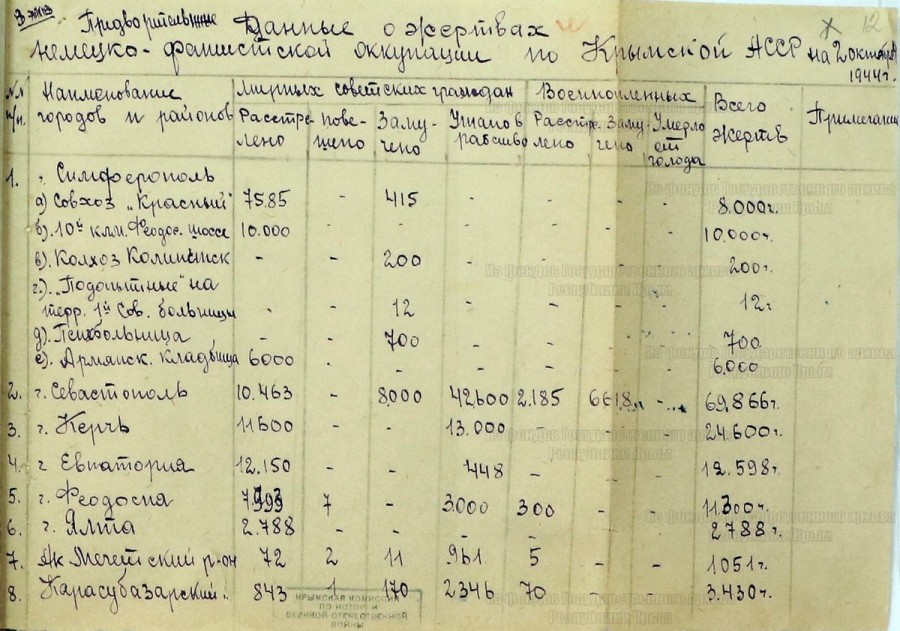 3 экз
Предварительные Данные о жертвах 12
немецко-фашистской оккупации по Крымской АССР на 2 октября
1944 г.
№№ п/п. Наименование городов и районов Мирных советских граждан Военнопленных Всего жертв Примечание
Расстреляно повешено Замучено Угнано в рабство Расстре-лено Заму-чено Умерло от голода
1. г. Симферополь
а) Совхоз „Красный" 7585 - 415 - - - - 8.000 ч.
б). 10й клм. Феодос. шоссе 10.000 - - - - - - 10.000 ч.
в). Колхоз - - 200 - - - - 200 ч.
г.). „Подопытные" на
терр. 1й Сов. больницы - - 12 - - - - 12 ч
д). Психбольница - - 700 - - - - 700
е). Армянск. кладбище 6000 - - - - - 6.000
2. г. Севастополь 10.463 - 8.000 42600 2.185 6618 - 69.866 ч.
3. г. Керчь 11600 - - 13.000 - - - 24.600 ч.
4. г Евпатория 12.150 - - 448 - - - 12.598 ч.
5. г. Феодосия 7 - 3.000 300 - - 11.300 ч.
6. г. Ялта 2.788 - - - - - - 2788 ч.
7. Ак Мечетский р-он 72 2 11 961 5 - - 1051 ч.
8. Карасубазарский " 843 1 170 2346 70 - - 3.430 ч.
КРЫМСКАЯ КОМИССИЯ
ПО ИСТОРИИ
ВЕЛИКОЙ ОТЕЧЕСТВЕННОЙ
ВОЙНЫ
Из фондов Государственного архива
Республики Крым